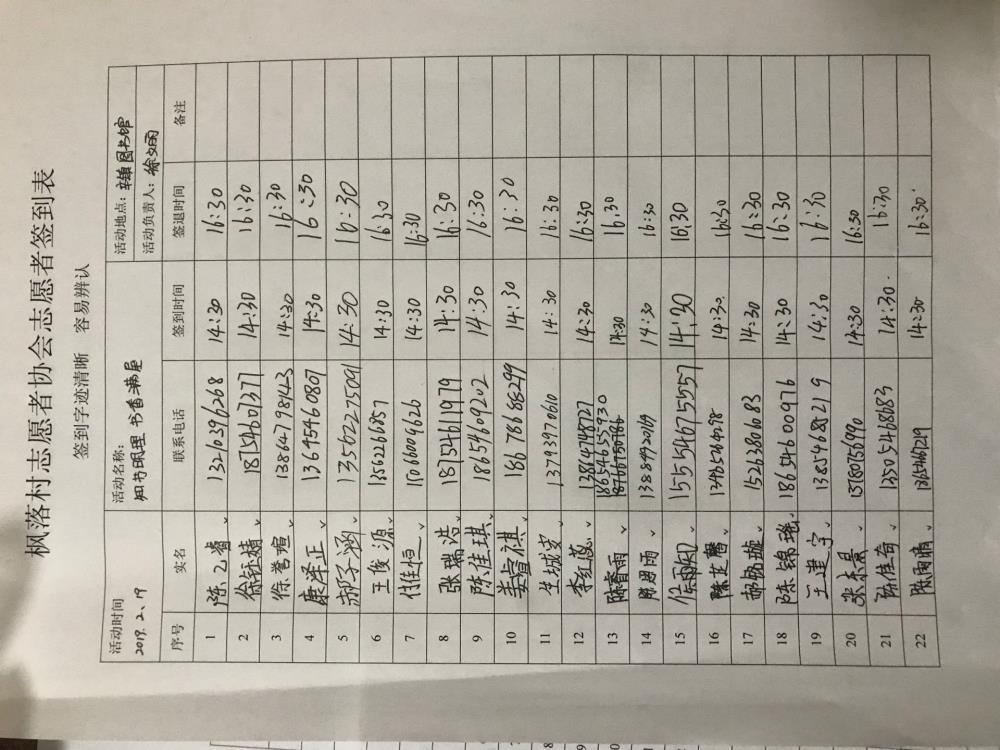 枫落村志愿者协会志愿者签到表
签到字迹清晰 容易辨认
活动时间 2019.2.19 活动名称: 知书明理 书香满屋 活动地点: 图书馆
活动负责人: 徐文雨
序号 实名 联系电话 签到时间 签退时间 备注
1 陈乙睿 13210396268 14:30 16:30
2 徐钰婧 18754607377 14:30 16:30
3 徐誉瑄 13864798423 14:30 16:30
4 康泽正 13645460807 14:30 16:30
5 郝子涵 13562275091 14:30 16:30
6 王俊源 13562266857 14:30 16:30
7 任恒 15066009626 14:30 16:30
8 张瑞浩 18754611979 14:30 16:30
9 陈佳琪 18654609202 14:30 16:30
10 姜睿祺 18678688299 14:30 16:30
11 生城安 13793970610 14:30 16:30
12 李红蕊 13814748727 14:30 16:30
13 陈睿雨 18654655930 14:30 16:30
14 14:30 16:30
15 侯雨彤 15554675557 14:30 16:30
16 陈芷馨 14:30 16:30
17 郝铭璇 15263801083 14:30 16:30
18 陈锦瑶 18654600976 14:30 16:30
19 王建宇 13854685219 14:30 16:30
20 张东景 13780756990 14:30 16:30
21 孙佳奇 13505468683 14:30 16:30
22 陈雨晴 14:30 16:30